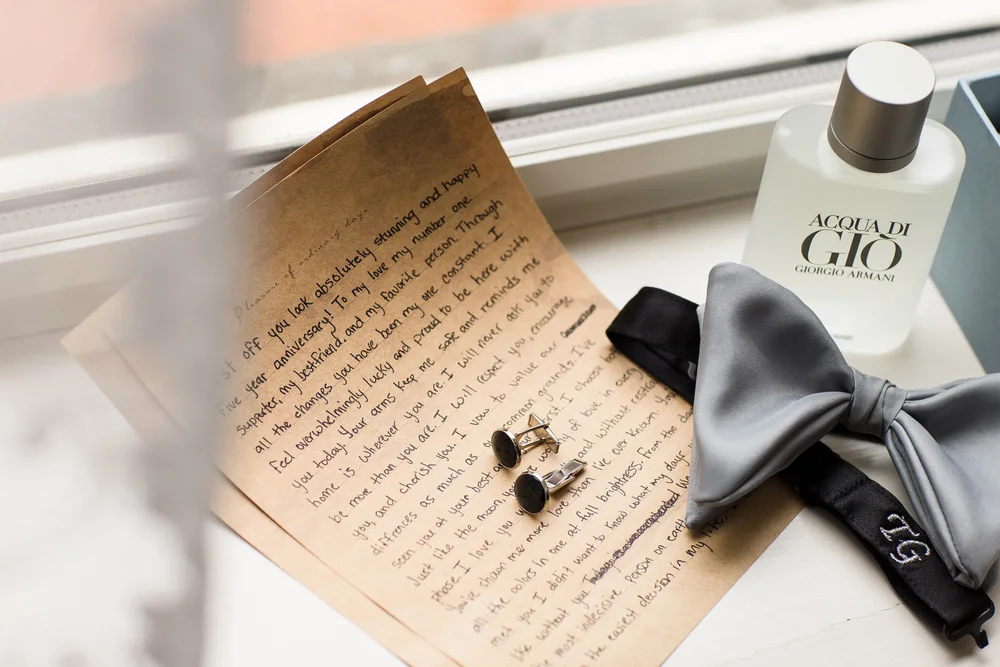 Pleasure of ordinary days
st off you look absolutely stunning and happy
five year anniversary! To my love my number one
supporter, my bestfriend, and my favorite person. Through
all the changes you have been my one constant. I
feel overwhelmingly lucky and proud to be here with
you today. Your arms keep me safe and reminds me
home is wherever you are. I will never ask you to
be more than you are. I will respect you encourage
you, and cherish you. I vow to value our
differences as much as common grounds. I've
seen you at your best I choose
Just like the moon y of love in every
phase. I love you and without
you've shown me more love than I've ever known. You
all the colors in one at full brightness. From the
met you I didn't want to know what my days
like without you. I
he most indecisive person on earth
the easiest decision in my life
ACQUA DI
GIÒ
GIORGIO ARMANI
TG